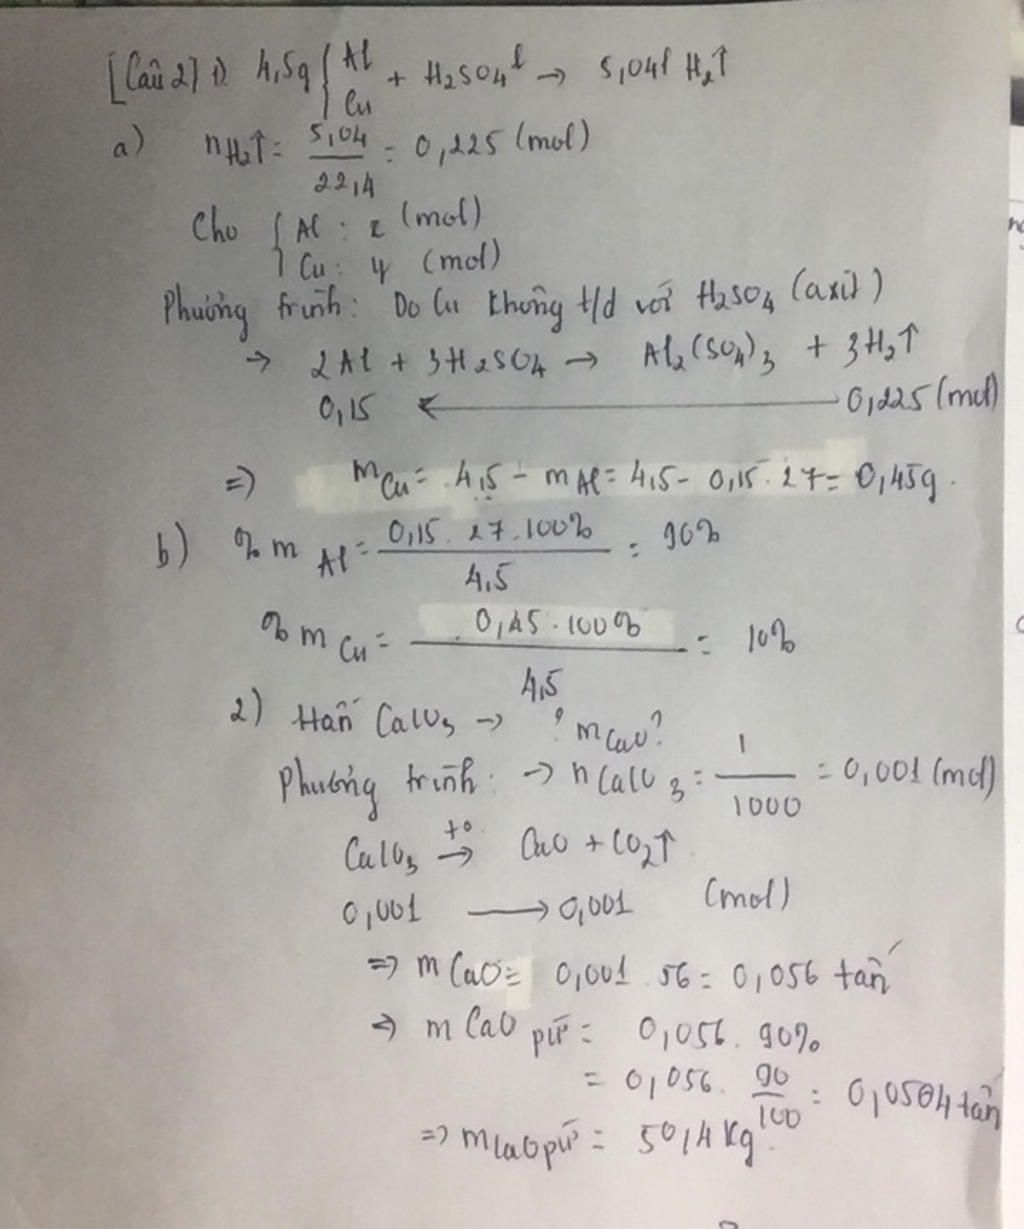 [Câu 2] 1) 4,5g { Al Cu + H2SO4 l → 5,04l H2↑
a) nH2↑ = 5,04 / 22,4 = 0,225 (mol)
Cho { Al : x (mol)
Cu : y (mol)
Phương trình: Do Cu không t/d với H2SO4 (axit)
→ 2Al + 3H2SO4 → Al2(SO4)3 + 3H2↑
0,15 ← 0,225 (mol)
=> mCu = 4,5 - mAl = 4,5 - 0,15 . 27 = 0,45g.
b) % m Al = 0,15 . 27 . 100% / 4,5 = 90%
% m Cu = 0,45 . 100% / 4,5 = 10%
2) 1tấn CaCO3 → ? mCaO?
Phương trình: → nCaCO3 = 1 / 1000 = 0,001 (mol)
CaCO3 →t° CaO + CO2↑
0,001 → 0,001 (mol)
=> m CaO = 0,001 . 56 = 0,056 tấn
=> m CaO pứ = 0,056 . 90%
= 0,056 . 90 / 100 = 0,0504 tấn
=> mCaO pứ = 50,4 kg.